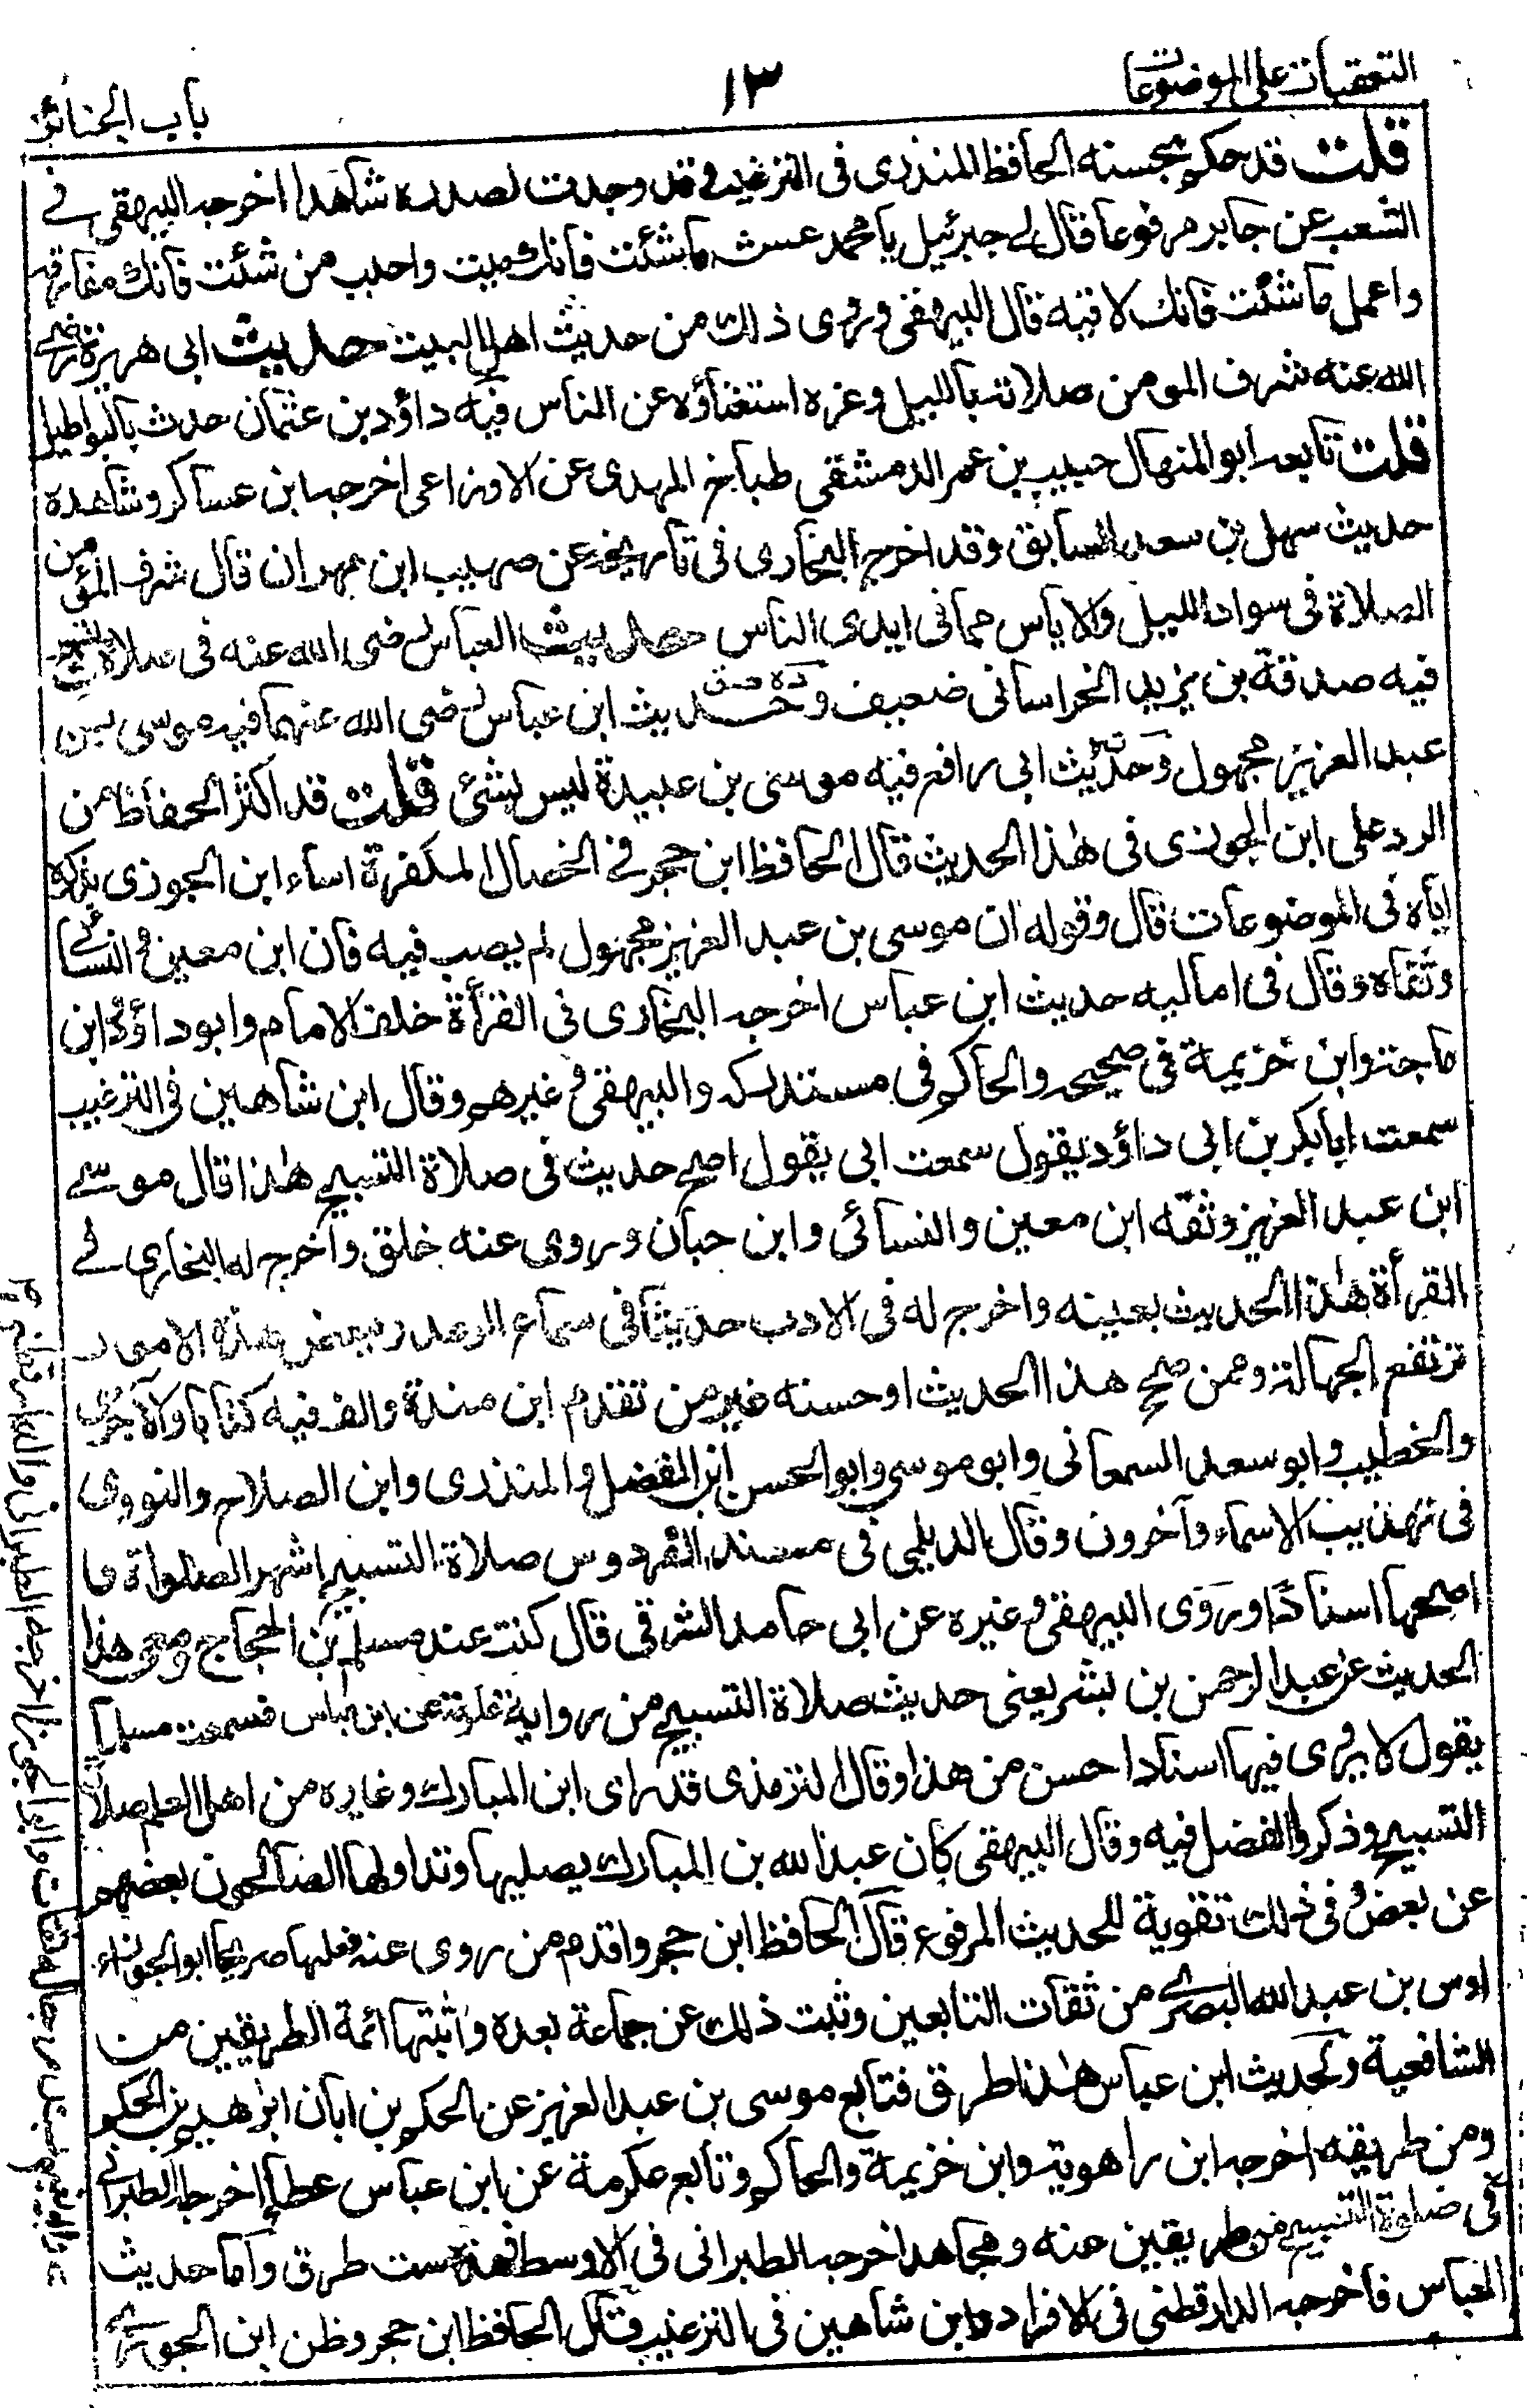 التعقبات على الموضوعات
١٣
باب الجنائز
قلت قد حكم بحسنه الحافظ المنذري في الترغيب وقد وجدت لصدره شاهدا اخرجه البيهقي في
الشعب عن جابر مرفوعا قال لي جبرئيل يا محمد عش ما شئت فانك ميت واحبب من شئت فانك مفارقه
واعمل ما شئت فانك لاقيه قال البيهقي وروى ذلك من حديث اهل البيت حديث ابي هريرة رضي
الله عنه شرف المومن صلاته بالليل وعزه استغناؤه عن الناس فيه داؤد بن عثمان حدث بالبواطيل
قلت تابعه ابو المنهال حبيب بن عمر الدمشقي طباخ المهدي عن الاوزاعي اخرجه ابن عساكر وشاهده
حديث سهل بن سعد السابق وقد اخرج البخاري في تاريخه عن صهيب ابن مهران قال شرف المؤمن
الصلاة في سواد الليل والاياس مما في ايدي الناس حديث العباس رضي الله عنه في صلاة التسبيح
فيه صدقة بن يزيد الخراساني ضعيف وحديث ابن عباس رضي الله عنهما فيه موسى بن
عبد العزيز مجهول وحديث ابي رافع فيه موسى بن عبيدة ليس بشئ قلت قد اكثر الحفاظ من
الرد على ابن الجوزي في هذا الحديث قال الحافظ ابن حجر في الخصال المكفرة اساء ابن الجوزي بذكره
اياه في الموضوعات قال وقوله ان موسى بن عبد العزيز مجهول لم يصب فيه فان ابن معين والنسائي
وثقاه وقال في اماليه حديث ابن عباس اخرجه البخاري في القرأة خلف الامام وابو داؤد وابن
ماجة وابن خزيمة في صحيحه والحاكم في مستدركه والبيهقي وغيرهم وقال ابن شاهين في الترغيب
سمعت ابا بكر بن ابي داؤد يقول سمعت ابي يقول اصح حديث في صلاة التسبيح هذا قال موسى
ابن عبد العزيز وثقه ابن معين والنسائي وابن حبان وروى عنه خلق واخرج له البخاري في
القرأة هذا الحديث بعينه واخرج له في الادب حديثا في سماع الرعد وببعض هذه الامور
ترتفع الجهالة وممن صحح هذا الحديث او حسنه غير من تقدم ابن مندة والف فيه كتابا والآجري
والخطيب وابو سعد السمعاني وابو موسى وابو الحسن ابن المفضل والمنذري وابن الصلاح والنووي
في تهذيب الاسماء وآخرون وقال الديلمي في مسند الفردوس صلاة التسبيح اشهر الصلوات و
اصحها اسنادا وروى البيهقي وغيره عن ابي حامد الشرقي قال كنت عند مسلم بن الحجاج ومعي هذا
الحديث عن عبد الرحمن بن بشر يعني حديث صلاة التسبيح من رواية عكرمة عن ابن عباس فسمعت مسلما
يقول لا يروى فيها اسناد احسن من هذا وقال الترمذي قد راى ابن المبارك وغيره من اهل العلم صلاة
التسبيح وذكروا الفضل فيه وقال البيهقي كان عبد الله بن المبارك يصليها وتداولها الصالحون بعضهم
عن بعض وفي ذلك تقوية للحديث المرفوع قال الحافظ ابن حجر واقدم من روى عنه فعلها صريحا ابو الجوزاء
اوس بن عبد الله البصري من ثقات التابعين وثبت ذلك عن جماعة بعده واثبتها ائمة الطريقين من
الشافعية ولحديث ابن عباس هذا طرق فتابع موسى بن عبد العزيز عن الحكم بن ابان ابراهيم بن الحكم
ومن طريقه اخرجه ابن راهويه وابن خزيمة والحاكم وتابع عكرمة عن ابن عباس عطاء اخرجه الطبراني
في صلوة التسبيح من طريقين عنه ومجاهد اخرجه الطبراني في الاوسط فهذه ست طرق واما حديث
العباس فاخرجه الدارقطني في الافراد وابن شاهين في الترغيب وقال الحافظ ابن حجر وظن ابن الجوزي